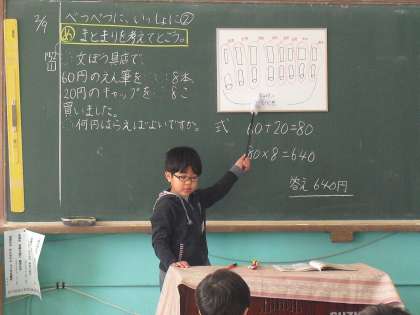 2/9
べつべつに、いっしょに②
め まとまりを考えてとこう。
文ぼう具店で、
60円のえん筆を 8本、
20円のキャップを 8こ
買いました。
何円はらえばよいですか。
式 60+20=80
80×8=640
答え 640円